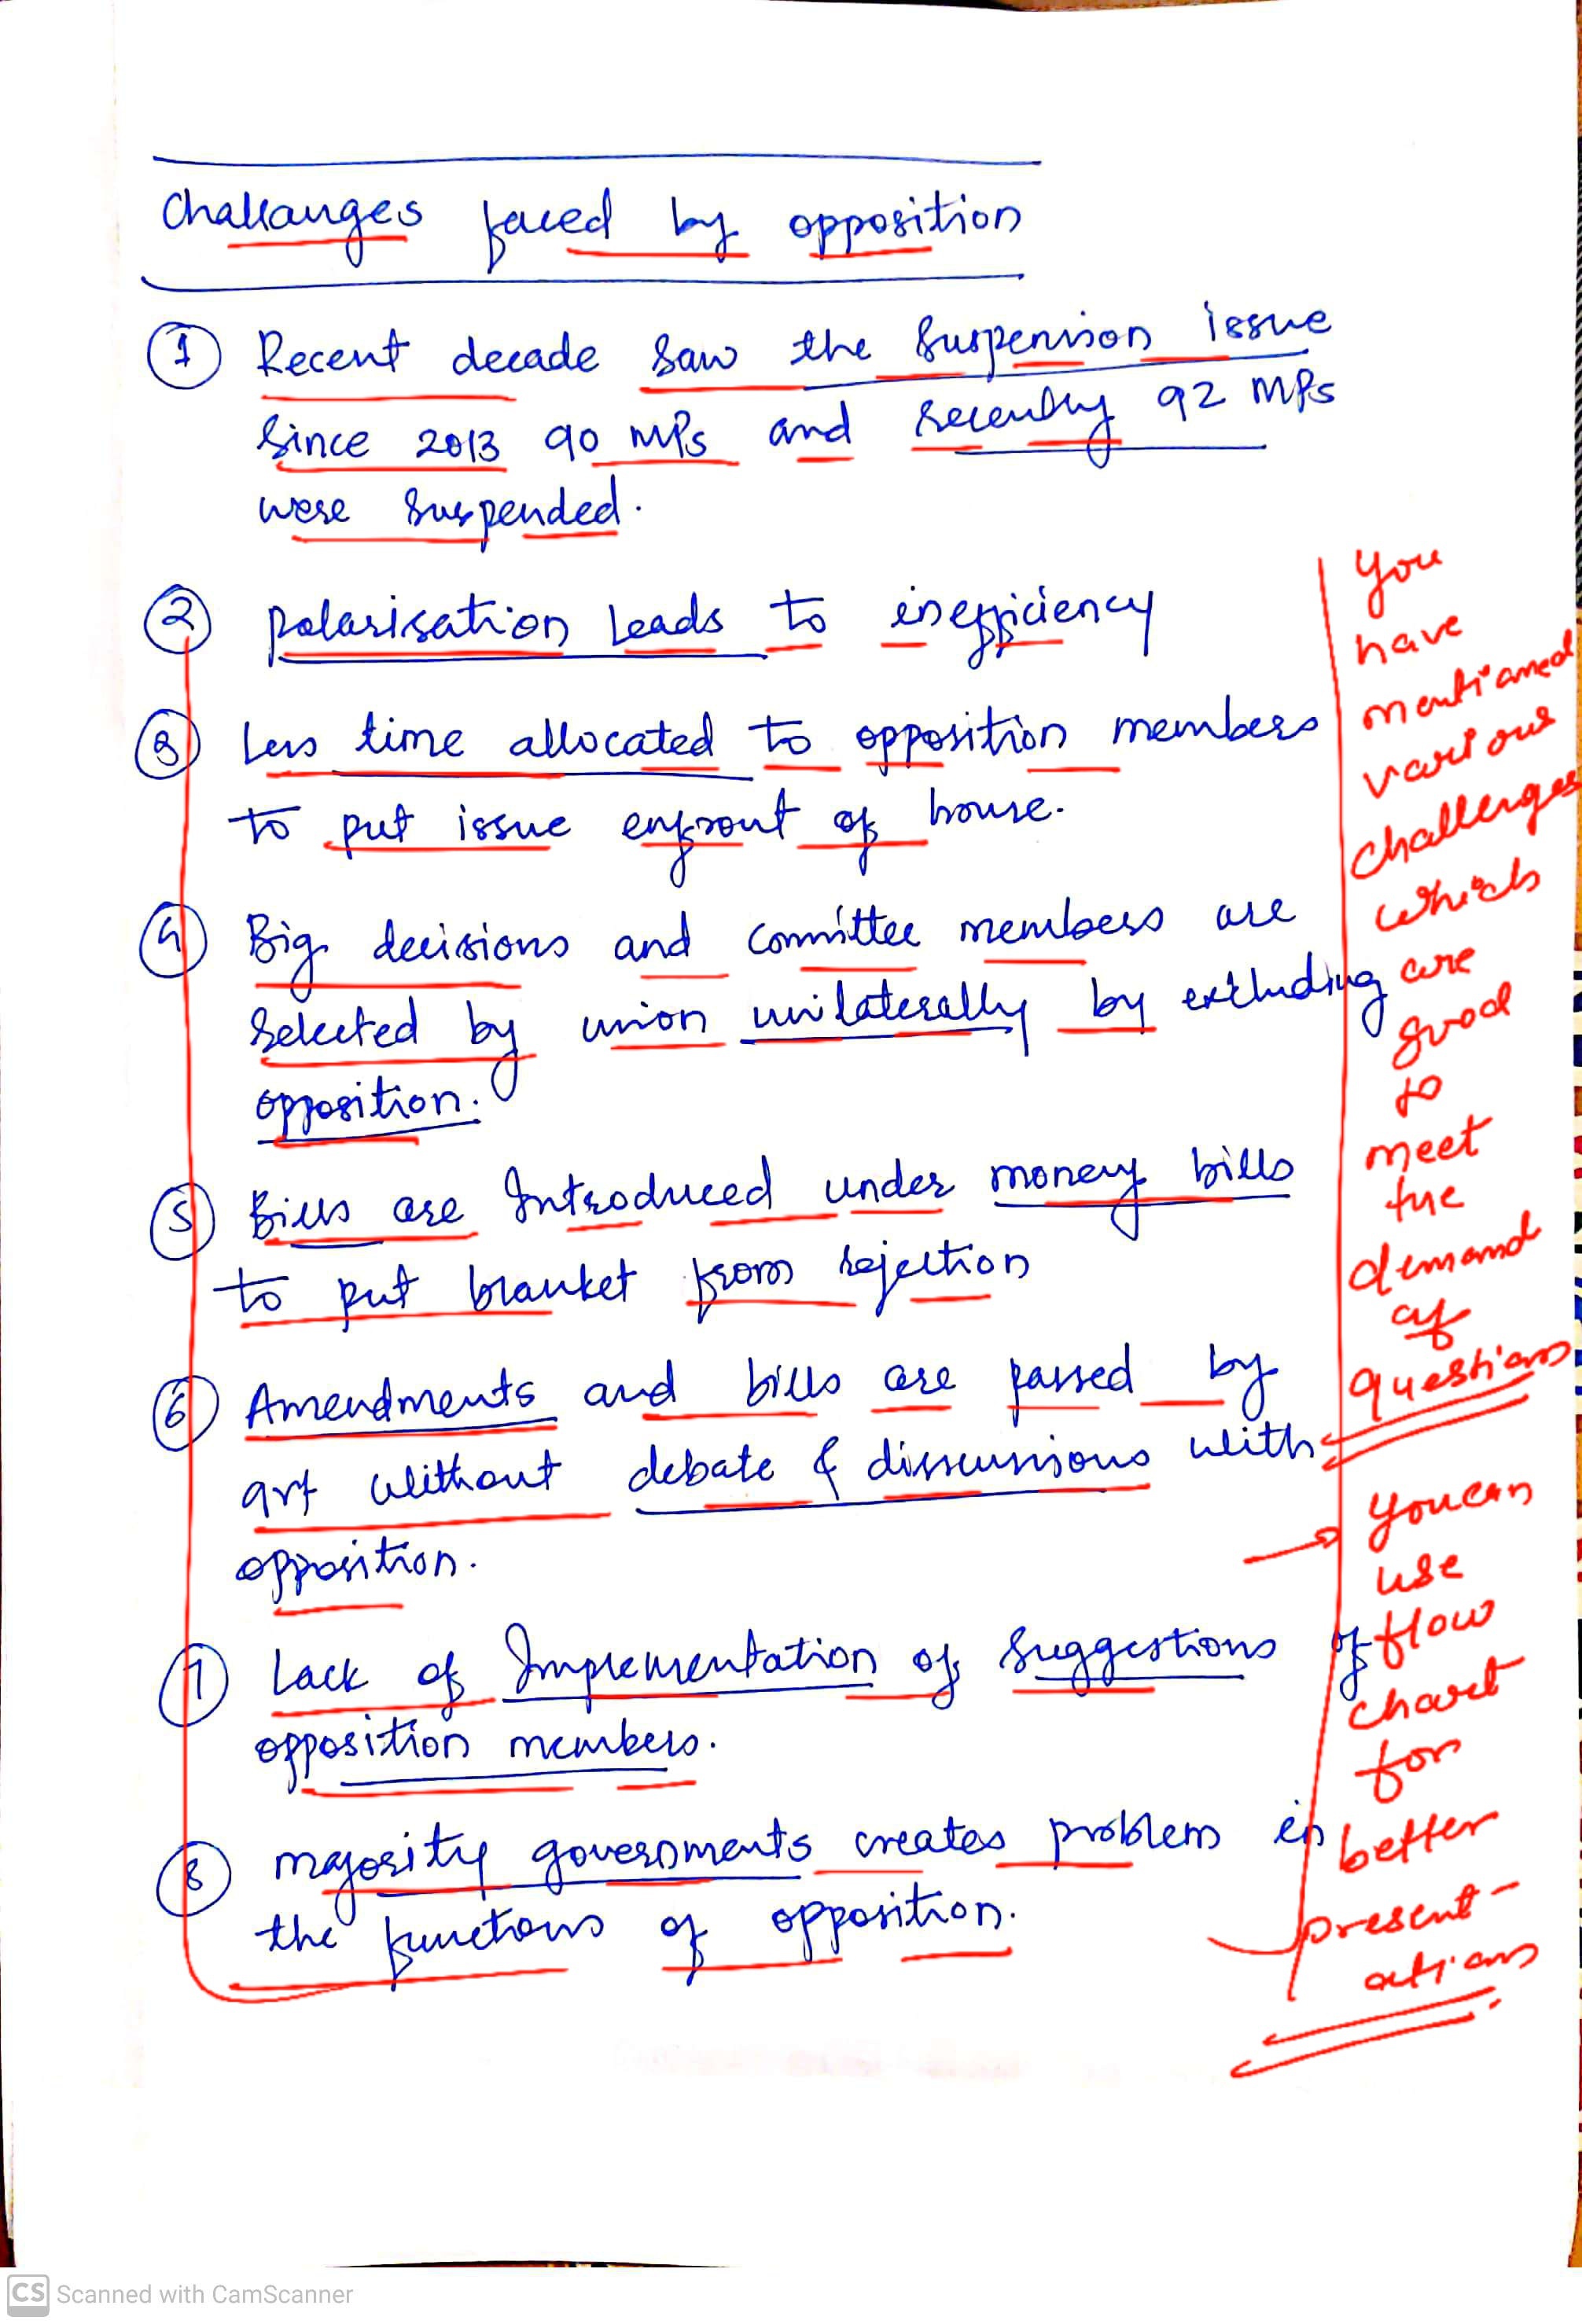 Challanges faced by opposition
1 Recent decade saw the suspension issue
since 2013 90 MPs and recently 92 MPs
were suspended.
2 polarisation leads to inefficiency
3 Less time allocated to opposition members
to put issue enfront of house.
4 Big decisions and committee members are
selected by union unilaterally by excluding
opposition.
5 Bills are Introduced under money bills
to put blanket from rejection
6 Amendments and bills are passed by
govt without debate & discussions with
opposition.
7 Lack of Implementation of suggestions of
opposition members.
8 majority governments creates problem in
the functions of opposition.
You
have
mentioned
various
challenges
which
are
good
to
meet
the
demand
of
questions
You can
use
flow
chart
for
better
present-
ations
CS Scanned with CamScanner